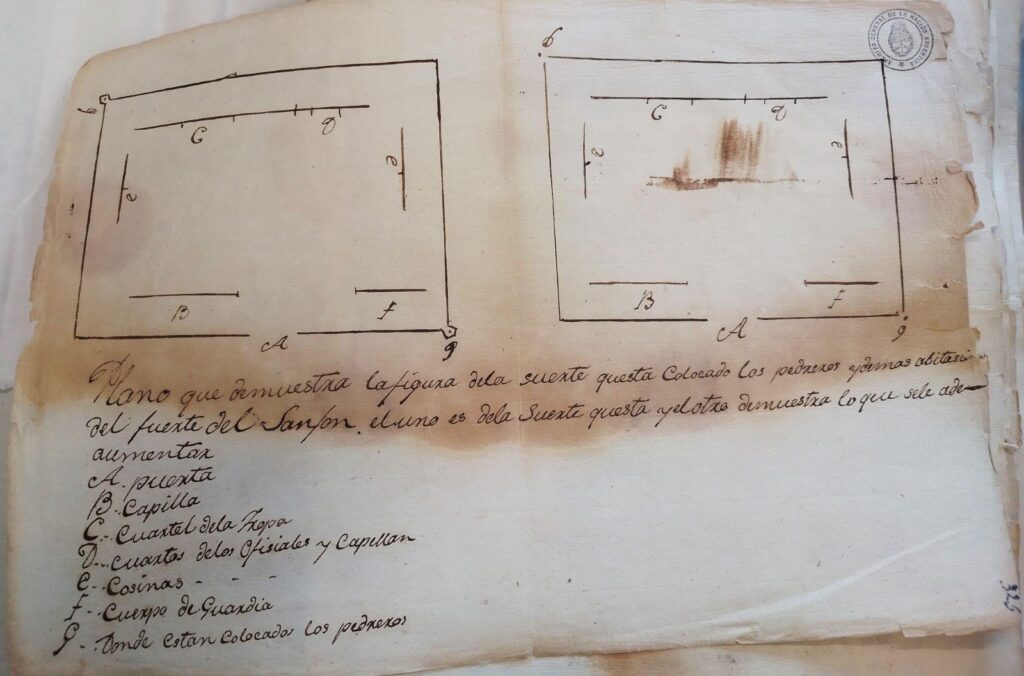 ARCHIVO GENERAL DE LA NACION ARGENTINA
g
g
C
D
C
D
e
e
e
e
B
f
B
f
A
g
A
g
Plano que demuestra la figura dela suerte questa Colocado los pedreros ydemas abitasion
del fuerte del Sanson. el uno es dela Suerte questa yel otro demuestra lo que sele ade
aumentar
A. puerta
B. Capilla
C.. Cuartel dela Tropa
D.. Cuartos delos Ofisiales y Capellan
e.. Cosinas - - -
f.. Cuerpo de Guardia
G.. Donde estan Colocados los pedreros
325